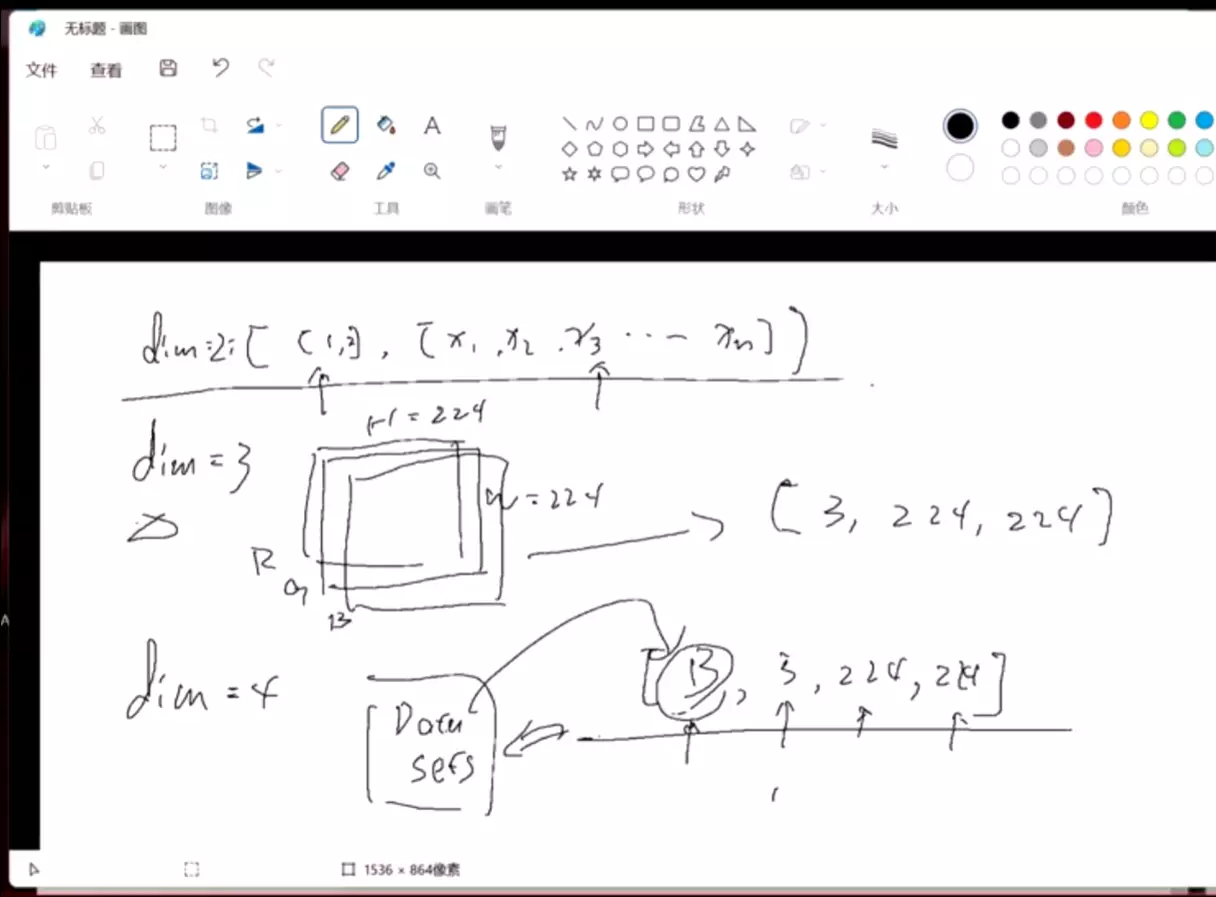 无标题 - 画图
文件 查看
A
剪贴板 图像 工具 画笔 形状 大小 颜色
dim=2: [ [1,2], [x1, x2, x3 ··· xn] ]
dim = 3
H = 224
W = 224
[ 3, 224, 224 ]
R
G
B
dim = 4
[ B, 3, 224, 224 ]
Data
sets
1536 × 864像素